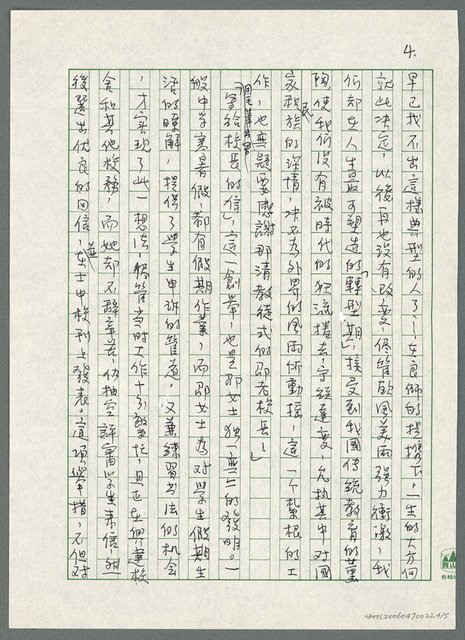 4.
早已找不出這樣典型的人了！在良師的提攜下，一生的大方向
就此決定，以後再也沒有改變，儘管歐風美雨強力衝激，我
們却在人生最可塑造的「轉型期」，接受到我國傳統教育的薰
陶，使我們沒有被時代的狂流捲去，守經達變，允執其中，對國
家民族的深情，决不為外界的風雨所動搖，這一個紮根的工
作，也真題要感謝那清教徒式的邵老校長！」
「寫給校長的信」，這一創舉，也是邵女士獨一無二的發明。一
般中學寒暑假，都有假期作業，而邵女士為對學生假期生
活的瞭解，提供了學生申訴的管道，又兼練習書法的機會
，才實現了此一想法，儘管當時工作十分繁忙，且正在興建校
舍和其他校務，而她却不辭辛苦，仍抽空評審學生來信，並
後選出優良的回信，在女士中校刊上發表。這項舉措，不但對
NMYL20060470022.4/5